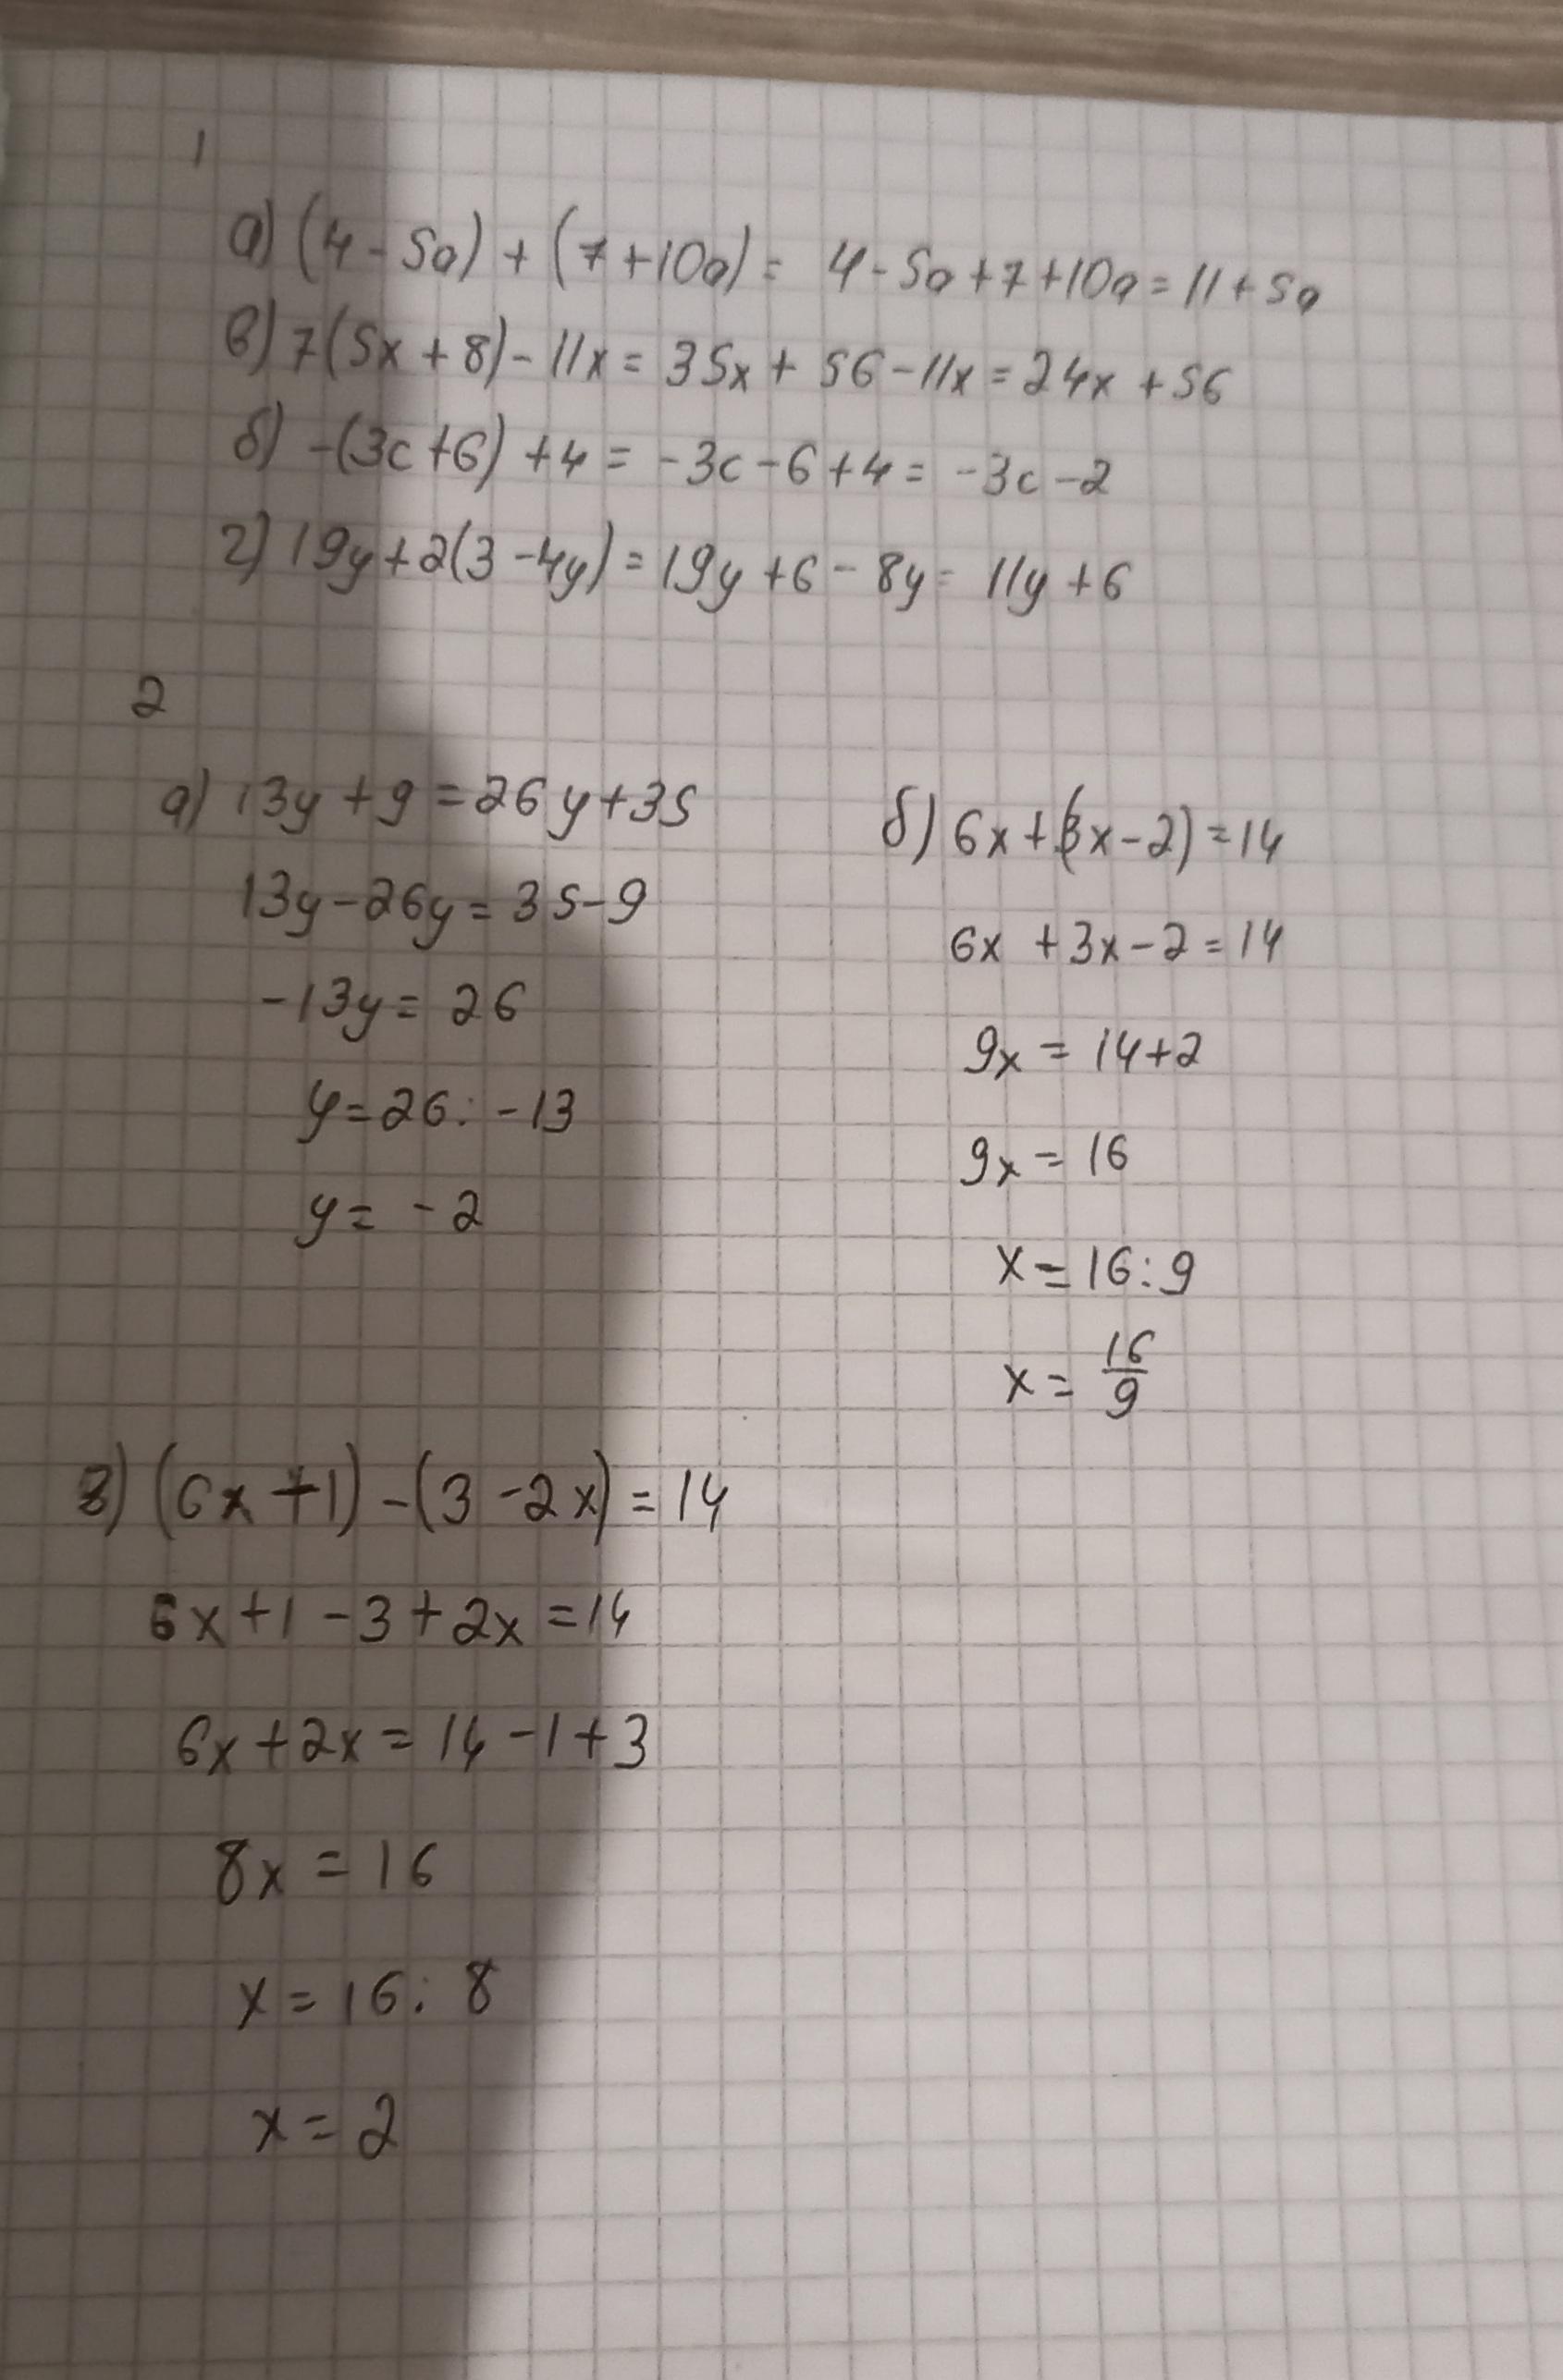 1
а) (4 - 5a) + (7 + 10a) = 4 - 5a + 7 + 10a = 11 + 5a
в) 7(5x + 8) - 11x = 35x + 56 - 11x = 24x + 56
б) -(3c + 6) + 4 = -3c - 6 + 4 = -3c - 2
г) 19y + 2(3 - 4y) = 19y + 6 - 8y = 11y + 6
2
а) 13y + 9 = 26y + 35
13y - 26y = 35 - 9
-13y = 26
y = 26 : -13
y = -2
б) 6x + (3x - 2) = 14
6x + 3x - 2 = 14
9x = 14 + 2
9x = 16
x = 16 : 9
x = 16/9
в) (6x + 1) - (3 - 2x) = 14
6x + 1 - 3 + 2x = 14
6x + 2x = 14 - 1 + 3
8x = 16
x = 16 : 8
x = 2